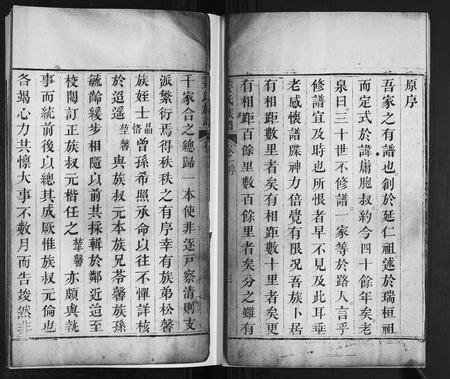 原序
吾家之有譜也創於延仁祖述於瑞桓祖
而定式於諱庸胞叔約今四十餘年矣老
泉曰三十世不修譜一家等於路人言乎
修譜宜及時也所恨者早不見及此耳垂
老感懷譜牒神力倍覺有限況吾族卜居
有相距數里者矣有相距數十里者矣更
有相距百餘里數百餘里者矣分之雖有
千家合之總歸一本使非逐戸察清則支
派繁衍焉得秩秩之有序幸有族弟松馨
族姪士 晶 恪 曾孫希照承命以往不憚詳核
於迢遥 馨與族叔元本族兄苓馨族孫
毓齡緩步相隨以前其採輯於鄰近迨至
校閱訂正族叔元楷任之 馨亦頗與執
事而統前後以總其成厥惟族叔元倫也
各竭心力共懷大事不數月而告竣然非